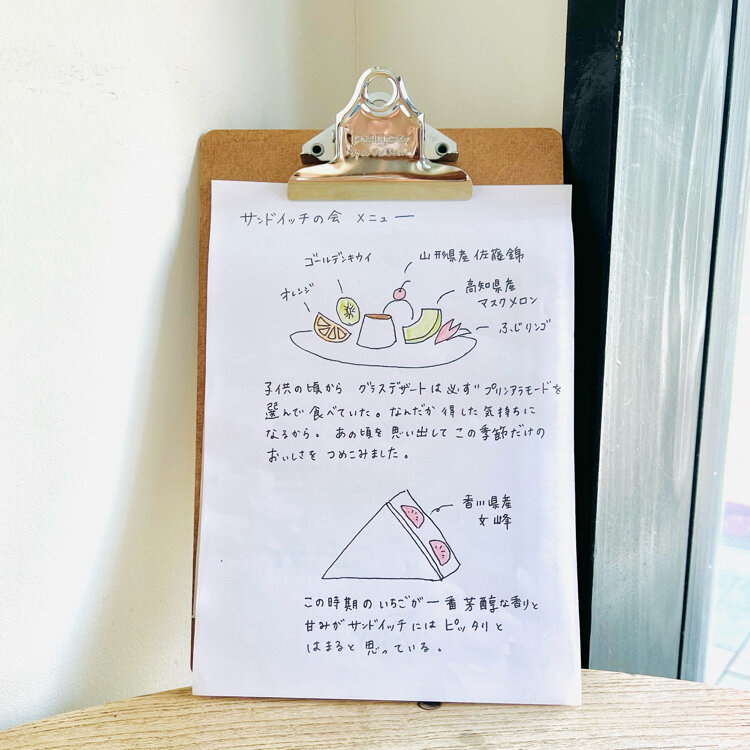 サンドイッチの会 メニュー
ゴールデンキウイ
山形県産 佐藤錦
オレンジ
高知県産
マスクメロン
ふじリンゴ
子供の頃から グラスデザートは必ず プリンアラモードを
選んで食べていた。なんだか得した気持ちに
なるから。あの頃を思い出して この季節だけの
おいしさを つめこみました。
香川県産
女峰
この時期の いちごが 一番 芳醇な香りと
甘みがサンドイッチには ピッタリと
はまると思っている。